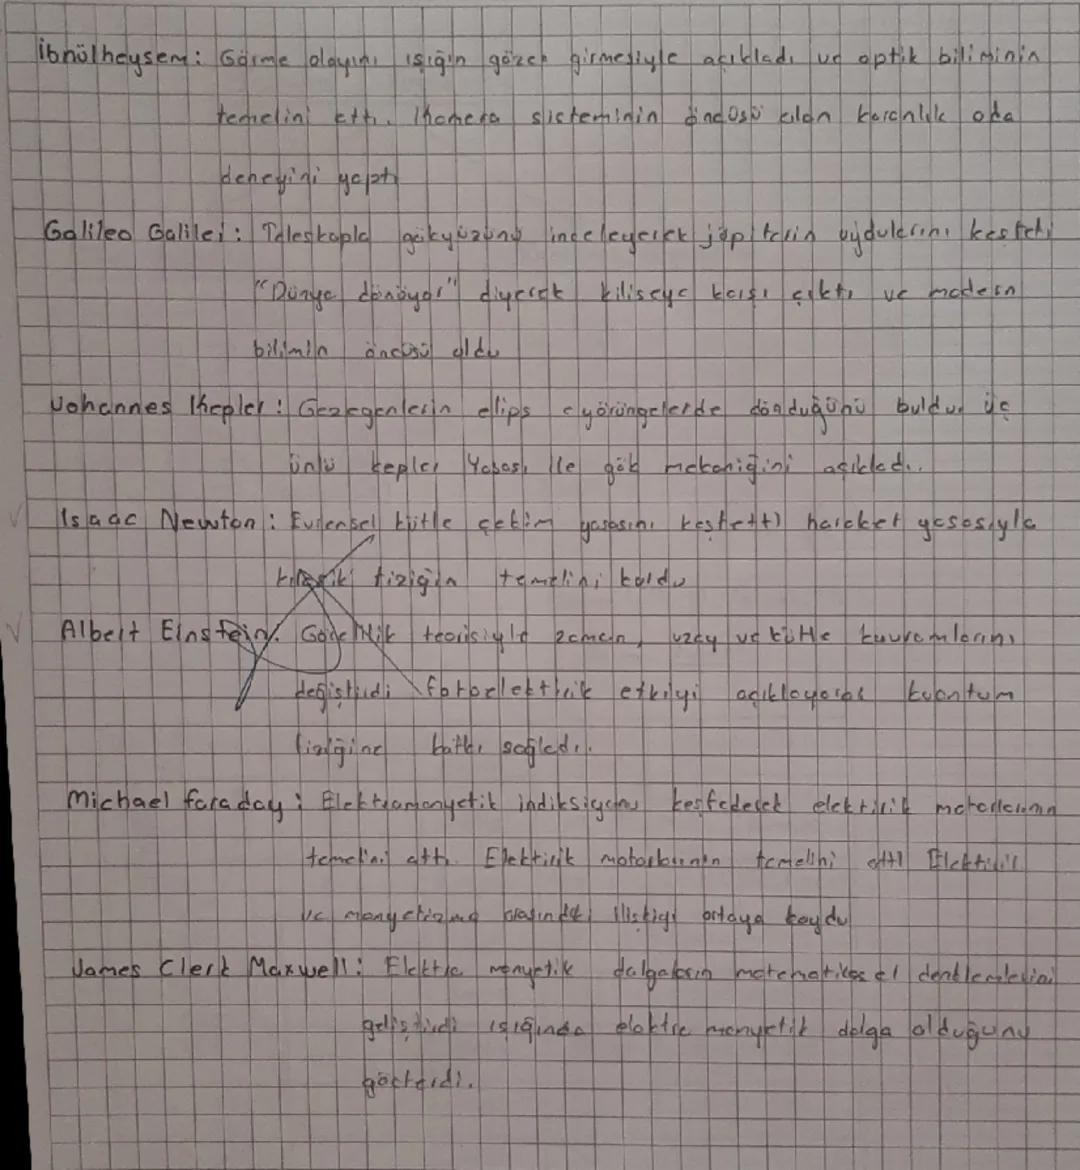 İbnülheysem: Görme olayını ışığın göze girmesiyle açıkladı ve optik biliminin
temelini attı. Kamera sisteminin öncüsü olan karanlık oda
deneyini yaptı
Galileo Galilei: Teleskopla gökyüzünü inceleyerek jüpiterin uydularını keşfetti
"Dünya dönüyor" diyerek kiliseye karşı çıktı ve modern
bilimin öncüsü oldu
Johannes Kepler: Gezegenlerin elips yörüngelerde döndüğünü buldu. üç
ünlü kepler Yasası ile gök mekaniğini açıkladı.
Isaac Newton: Evrensel kütle çekim yasasını keşfetti hareket yasasıyla
klasik fiziğin temelini kurdu
Albert Einstein: Görelilik teorisiyle zaman, uzay ve kütle kavramlarını
değiştirdi fotoelektrik etkiyi açıklayarak kuantum
fiziğine katkı sağladı.
Michael faraday: Elektromanyetik indiksiyonu keşfederek elektirik motorlarının
temelini attı. Elektirik motorlarının temelini attı Elektirik
ve manyetizma arasındaki ilişkiyi ortaya koydu
James Clerk Maxwell: Elektro manyetik dalgaların matematiksel denklemlerini
geliştirdi ışığında elektro manyetik dalga olduğunu
gösterdi.